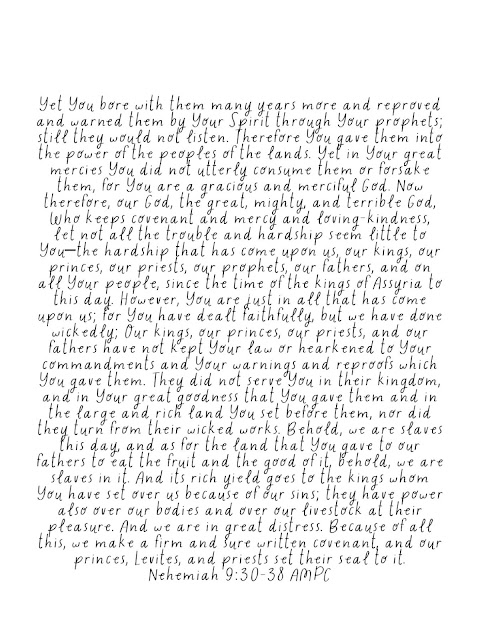 Yet You bore with them many years more and reproved
and warned them by Your Spirit through Your prophets;
still they would not listen. Therefore You gave them into
the power of the peoples of the lands. Yet in Your great
mercies You did not utterly consume them or forsake
them, for You are a gracious and merciful God. Now
therefore, our God, the great, mighty, and terrible God,
Who keeps covenant and mercy and loving-kindness,
let not all the trouble and hardship seem little to
You—the hardship that has come upon us, our kings, our
princes, our priests, our prophets, our fathers, and on
all Your people, since the time of the kings of Assyria to
this day. However, You are just in all that has come
upon us; for You have dealt faithfully, but we have done
wickedly; Our kings, our princes, our priests, and our
fathers have not kept Your law or hearkened to Your
commandments and Your warnings and reproofs which
You gave them. They did not serve You in their kingdom,
and in Your great goodness that You gave them and in
the large and rich land You set before them, nor did
they turn from their wicked works. Behold, we are slaves
this day, and as for the land that You gave to our
fathers to eat the fruit and the good of it, behold, we are
slaves in it. And its rich yield goes to the kings whom
You have set over us because of our sins; they have power
also over our bodies and over our livestock at their
pleasure. And we are in great distress. Because of all
this, we make a firm and sure written covenant, and our
princes, Levites, and priests set their seal to it.
Nehemiah 9:30-38 AMPC